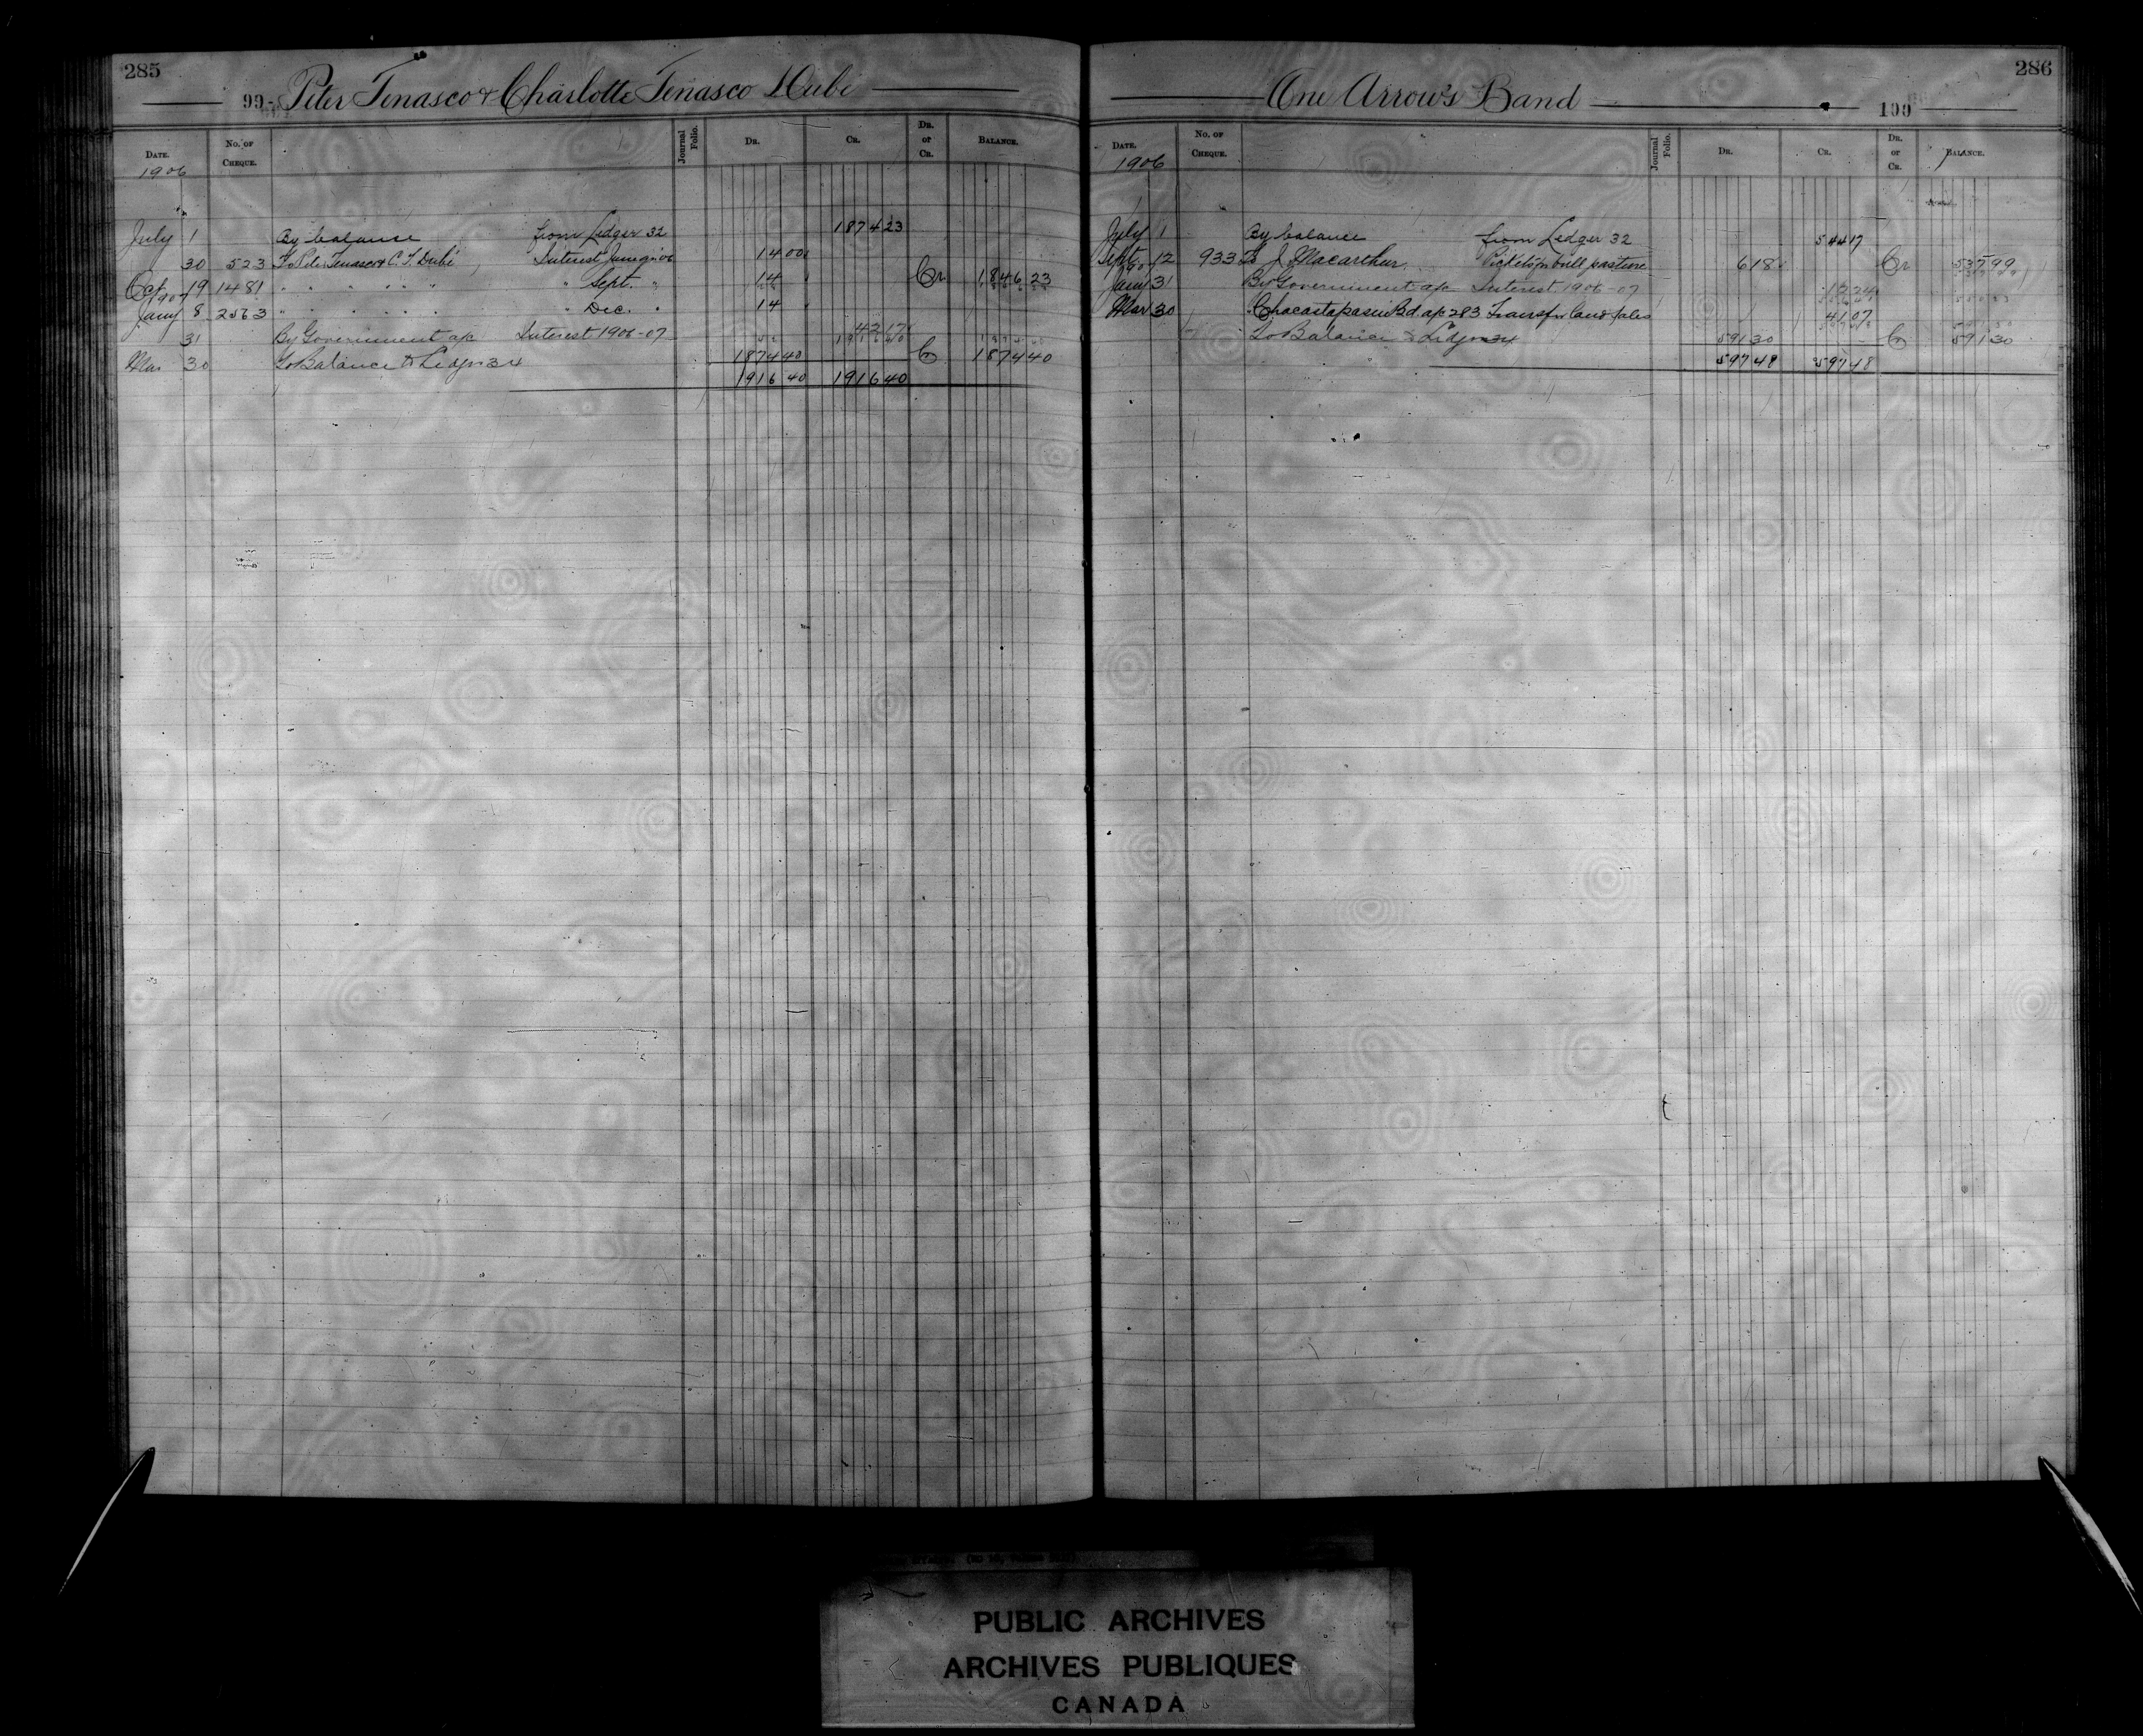 285
99- Peter Tenasco & Charlotte Tenasco Dubé
DATE. No. OF CHEQUE. Journal Folio. DR. CR. DR. or CR. BALANCE.
1906
July 1 By balance from Ledger 32 1874 23
30 523 To Peter Tenasco & C. T. Dubé Interest June qr 06 14 00
Oct 19 1481 " " " " " " Sept. " 14 Cr 1846 23
1907
Jany 8 2563 " " " " " " Dec. " 14
31 By Government a/c Interest 1906-07 42 17
Mar 30 To Balance to Ledger 34 1874 40 Cr 1874 40
1916 40 1916 40
286
One Arrow's Band 100
DATE. No. OF CHEQUE. Journal Folio. DR. CR. DR. or CR. BALANCE.
1906
July 1 By balance from Ledger 32 544 17
Sept. 12 933 To J. Macarthur Pickets for bull pasture 6 18 Cr 537 99
1907
Jany 31 By Government a/c Interest 1906-07 12 24
Mar 30 " Chacastapasin Bd. a/c 283 Transfer land sales 41 07
To Balance to Ledger 34 591 30 Cr 591 30
597 48 597 48
PUBLIC ARCHIVES
ARCHIVES PUBLIQUES
CANADA